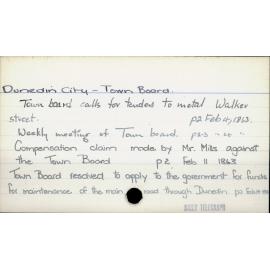 Dunedin City - Town Board.
Town board calls for tenders to metal Walker
street. p2 Feb 4, 1863.
Weekly meeting of Town board.
Compensation claim made by Mr. Mills against
the Town Board p2 Feb 11 1863
Town Board resolved to apply to the government for funds
for maintenance of the main road through Dunedin. p2 Feb
DAILY TELEGRAPH